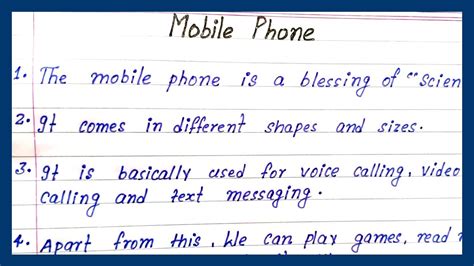 Mobile Phone
1. The mobile phone is a blessing of "Scien
2. It comes in different shapes and sizes.
3. It is basically used for voice calling, video
calling and text messaging.
4. Apart from this, We can play games, read